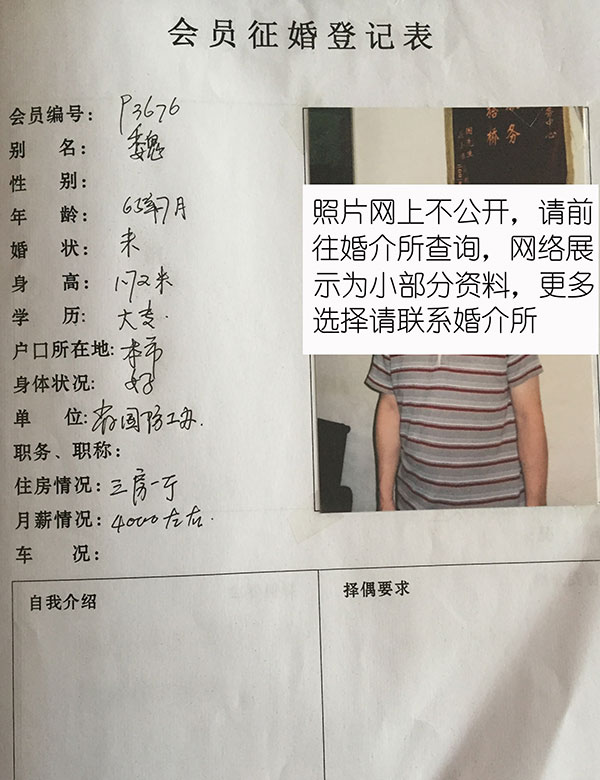 会员征婚登记表
会员编号: P3676
别 名: 魏
性 别:
年 龄: 63年7月
婚 状: 未
身 高: 1.72米
学 历: 大专.
户口所在地: 本市
身体状况: 好
单 位: 省国防工办.
职务、职称:
住房情况: 三房一厅
月薪情况: 4000左右.
车 况:
自我介绍
择偶要求
务
桥
中心
照片网上不公开，请前
往婚介所查询，网络展
示为小部分资料，更多
选择请联系婚介所